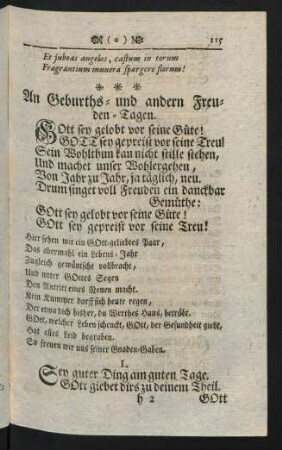 ( o ) 115
Et jubeas angelos, castum in torum
Fragrantium munera spargere florum!
* * *
An Geburths- und andern Freu-
den-Tagen.
GOtt sey gelobt vor seine Güte!
GOTT sey gepreist vor seine Treu!
Sein Wohlthun kan nicht stille stehen,
Und machet unser Wohlergehen,
Von Jahr zu Jahr, ja täglich, neu.
Drum singet voll Freuden ein danckbar
Gemüthe:
GOtt sey gelobt vor seine Güte!
GOtt sey gepreist vor seine Treu!
Hier sehen wir ein GOtt-geliebtes Paar,
Das abermahl ein Lebens-Jahr
Zugleich gewünscht vollbracht,
Und unter GOttes Segen
Den Antritt eines Neuen macht.
Kein Kummer darff sich heute regen,
Der etwa dich bisher, du Werthes Hauß, betrübt.
GOtt, welcher Leben schenckt, GOtt, der Gesundheit giebt,
Hat alles Leid begraben.
So freuen wir uns seiner Gnaden-Gaben.
1.
Sey guter Ding am guten Tage.
GOtt giebet dirs zu deinem Theil.
h 2 GOtt